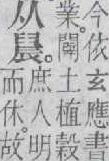 今依玄應書
業。闢土植穀
从晨。
庶人明
而休故